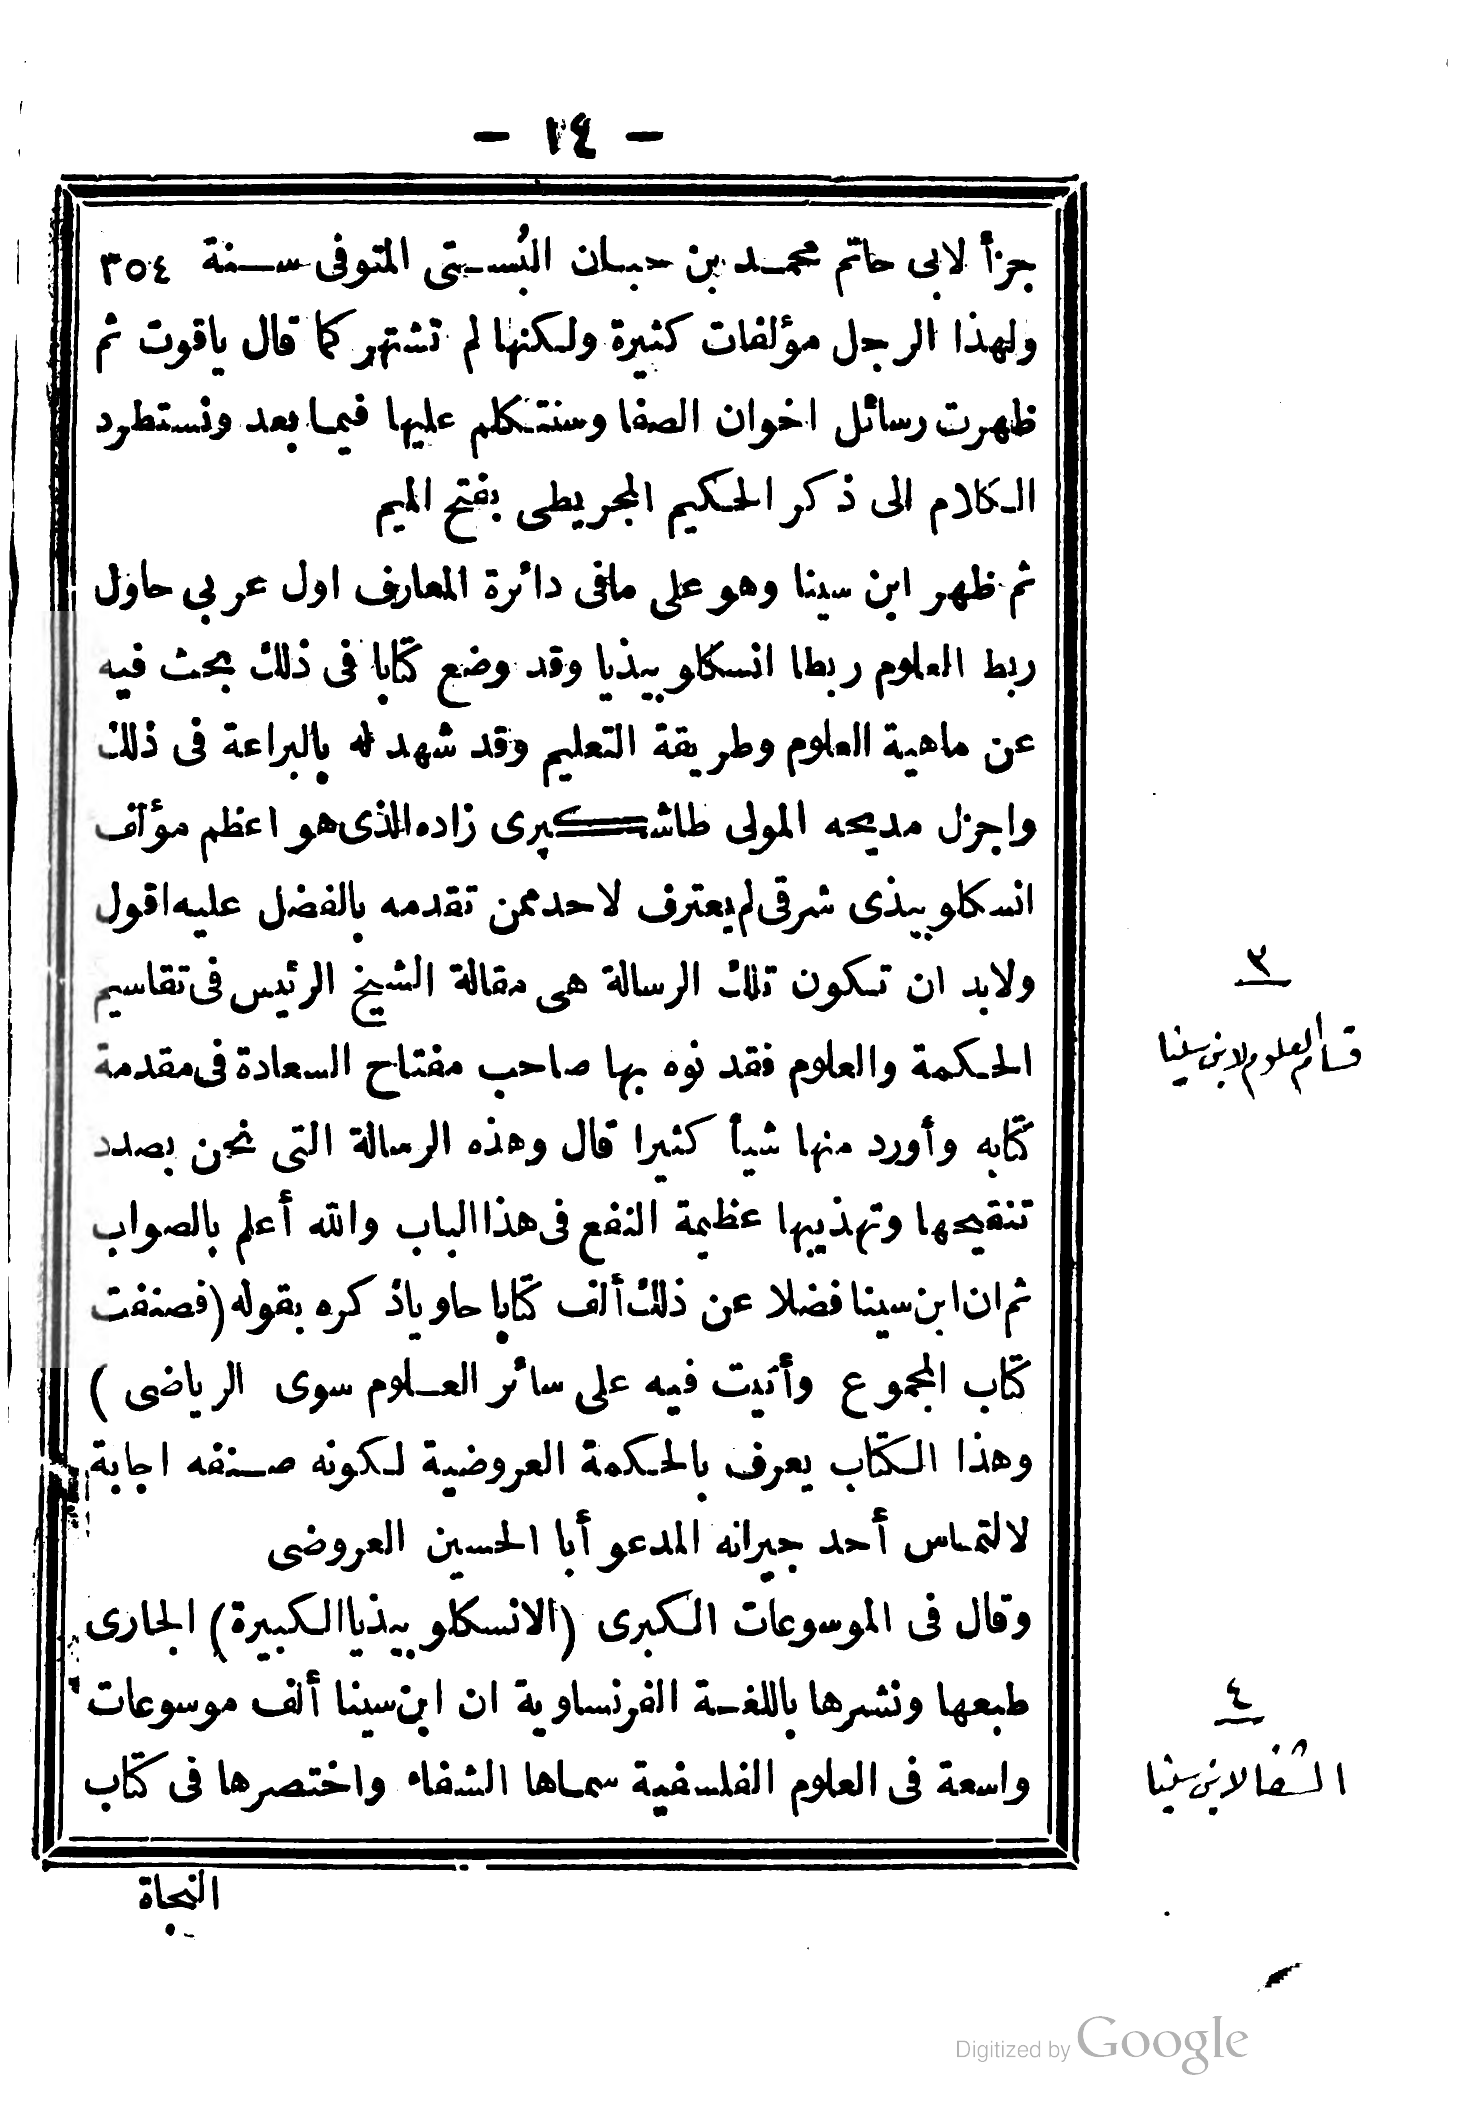 — ١٤ —
جزأ لابى حاتم محمد بن حبان البُستى المتوفى سنة ٣٥٤
ولهذا الرجل مؤلفات كثيرة ولكنها لم تشتهر كما قال ياقوت ثم
ظهرت رسائل اخوان الصفا وسنتكلم عليها فيما بعد ونستطرد
الكلام الى ذكر الحكيم المجريطى بفتح الميم
ثم ظهر ابن سينا وهو على مافى دائرة المعارف اول عربي حاول
ربط العلوم ربطا انسكلوبيذيا وقد وضع كتابا فى ذلك بحث فيه
عن ماهية العلوم وطريقة التعليم وقد شهد له بالبراعة فى ذلك
واجزل مديحه المولى طاشكپرى زاده الذى هو اعظم مؤلف
انسكلوبيذى شرقى لم يعترف لاحد ممن تقدمه بالفضل عليه اقول
ولابد ان تكون تلك الرسالة هى مقالة الشيخ الرئيس فى تقاسيم
الحكمة والعلوم فقد نوه بها صاحب مفتاح السعادة فى مقدمة
كتابه وأورد منها شيأ كثيرا قال وهذه الرسالة التى نحن بصدد
تنقيحها وتهذيبها عظيمة النفع فى هذا الباب والله أعلم بالصواب
ثم ان ابن سينا فضلا عن ذلك ألف كتابا حاويا ذكره بقوله (فصنفت
كتاب المجموع وأتيت فيه على سائر العلوم سوى الرياضى )
وهذا الكتاب يعرف بالحكمة العروضية لكونه صنفه اجابة
لالتماس أحد جيرانه المدعو أبا الحسين العروضى
وقال فى الموسوعات الكبرى (الانسكلوبيذيا الكبيرة) الجارى
طبعها ونشرها باللغة الفرنساوية ان ابن سينا ألف موسوعات
واسعة فى العلوم الفلسفية سماها الشفاء واختصرها فى كتاب
النجاة
٣
قسام العلوم لابن سينا
٤
الشفا لابن سينا
Digitized by Google